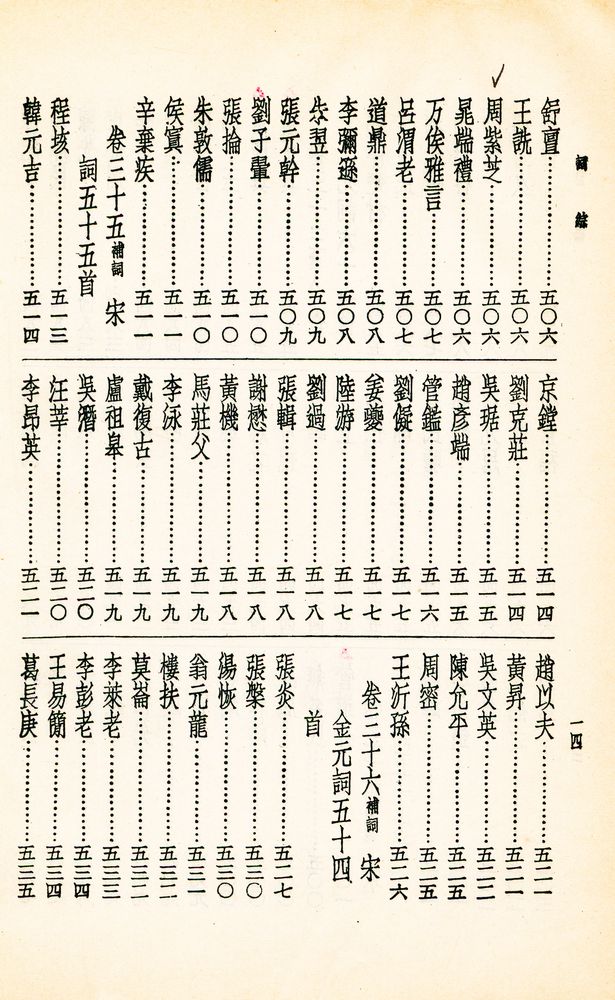 詞綜
一四
舒亶……五〇六
王詵……五〇六
周紫芝……五〇六
晁端禮……五〇六
万俟雅言……五〇七
呂渭老……五〇七
道鼎……五〇八
李彌遜……五〇八
朱翌……五〇九
張元幹……五〇九
劉子翬……五一〇
張掄……五一〇
朱敦儒……五一〇
侯寘……五一一
辛棄疾……五一一
卷三十五 補詞 宋
詞五十五首
程垓……五一三
韓元吉……五一四
京鏜……五一四
劉克莊……五一四
吳琚……五一五
趙彥端……五一五
管鑑……五一六
劉儗……五一七
姜夔……五一七
陸游……五一七
劉過……五一八
張輯……五一八
謝懋……五一八
黃機……五一八
馬莊父……五一九
李泳……五一九
戴復古……五一九
盧祖皋……五一九
吳潛……五二〇
汪莘……五二〇
李昂英……五二一
趙以夫……五二一
黃昇……五二一
吳文英……五二二
陳允平……五二五
周密……五二五
王沂孫……五二六
卷三十六 補詞 宋
金元詞五十四
首
張炎……五二七
張槃……五三〇
湯恢……五三〇
翁元龍……五三一
樓扶……五三二
莫崙……五三二
李萊老……五三三
李彭老……五三四
王易簡……五三四
葛長庚……五三五